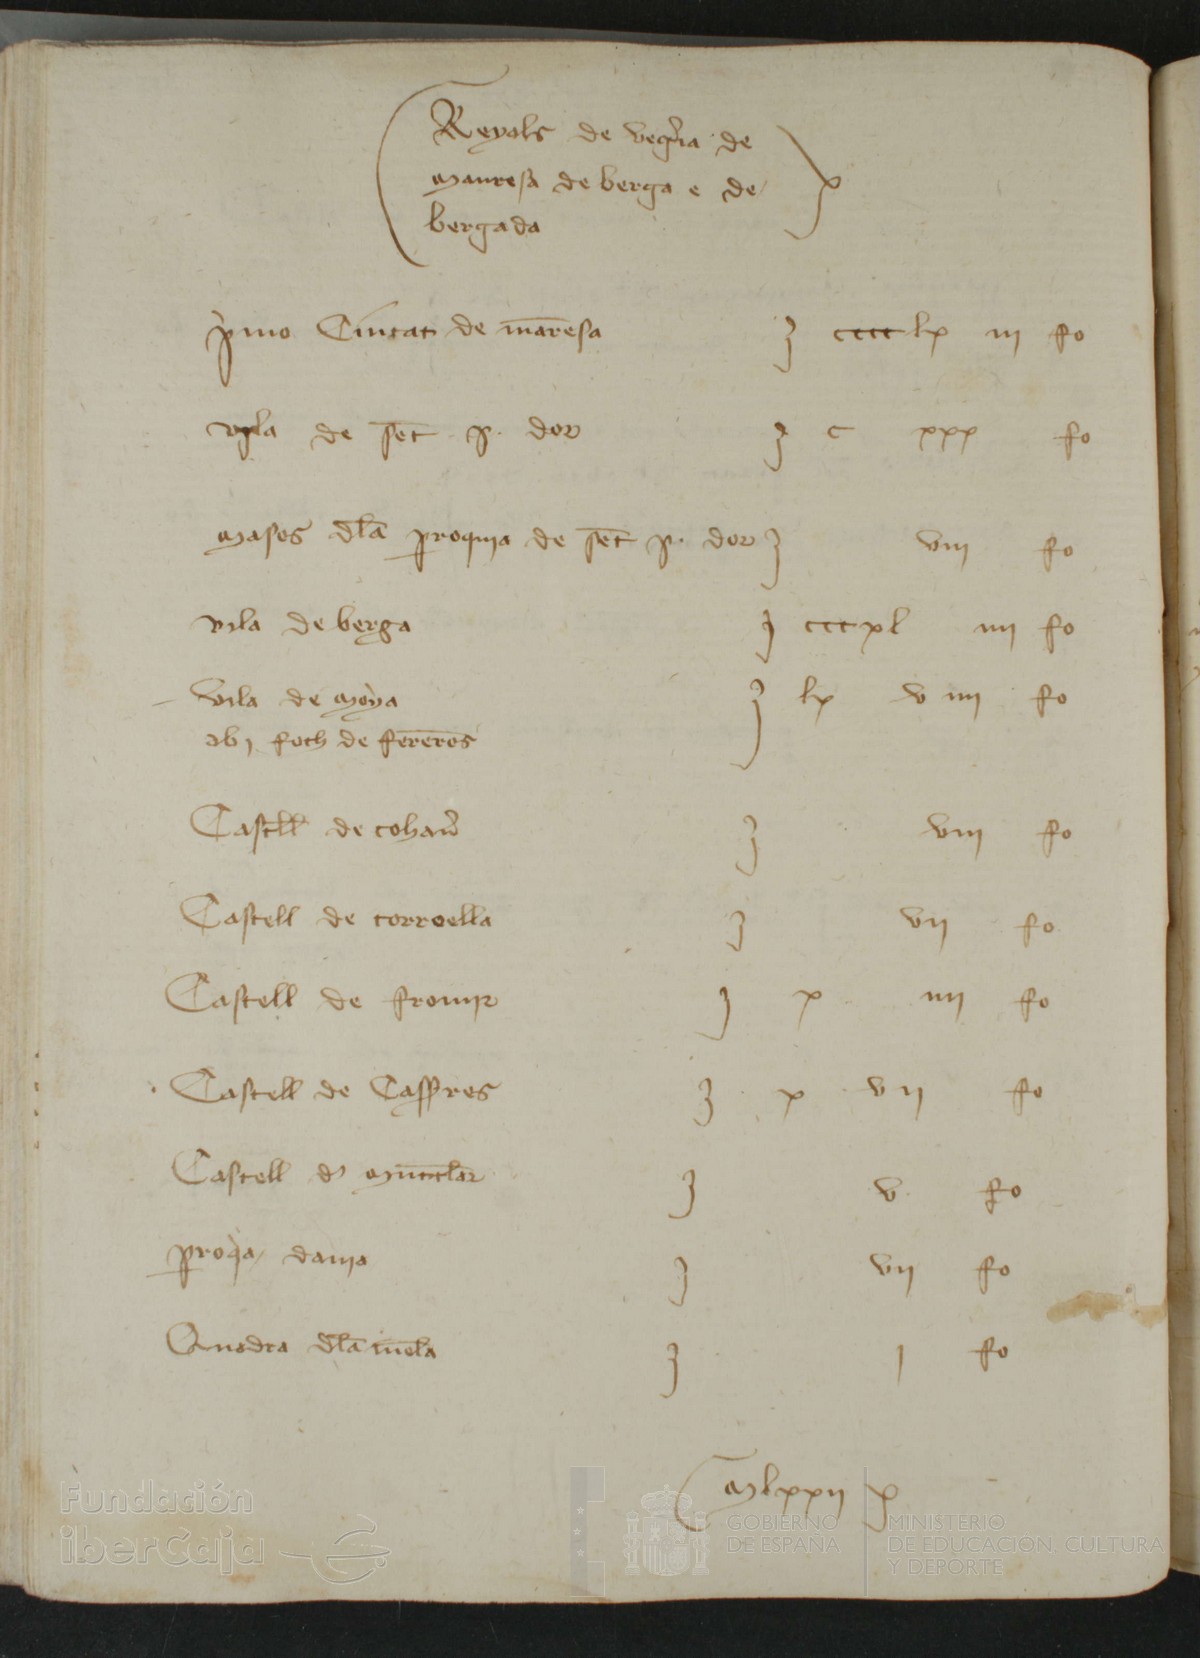 Reyals de vegria de
manresa de berga e de
bergada
primo Ciutat de manresa cccclx iii fo
vila de sent p. dor c xxx fo
mases dla proquia de sent p. dor viii fo
vila de berga cccxl iiii fo
Vila de moya lx v iiii fo
ab j foch de fereres
Castell de cohan viii fo
Castell de torroella vii fo
Castell de fromir x iiii fo
Castell de Casserres x v ii fo
Castell d muntclar v fo
proqia davia vii fo
Quadra dla j fo
Mlxxii
Fundación
iberCaja
GOBIERNO
DE ESPAÑA
MINISTERIO
DE EDUCACIÓN, CULTURA
Y DEPORTE